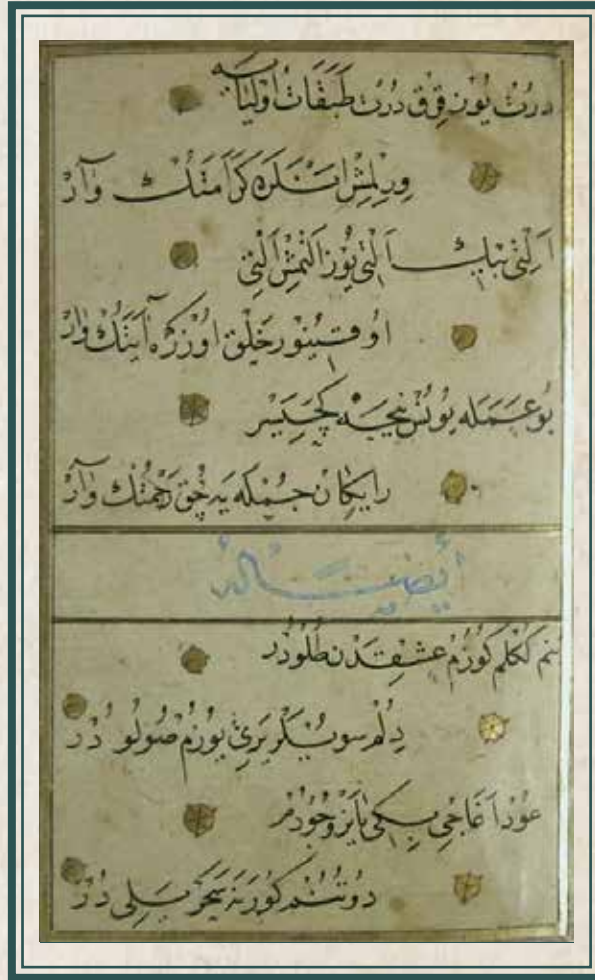 درت يوز قرق درت طبقات اوليايه
ويرلمش انلره كرامتك وار
التى بيك التى يوز التمش التى
اوقينور خلق اوزره آيتك وار
بو عمله يونس نيجه كچيسر
رايكان جمله يه چق رحمتك وار
أيضاً له
بنم ككلم كوزم عشقدن طلودر
دلم سويلر يرى يوزم صولودر
عود آغاجى بكى يانر وجودم
دوتنم كورنه سحر يلى در